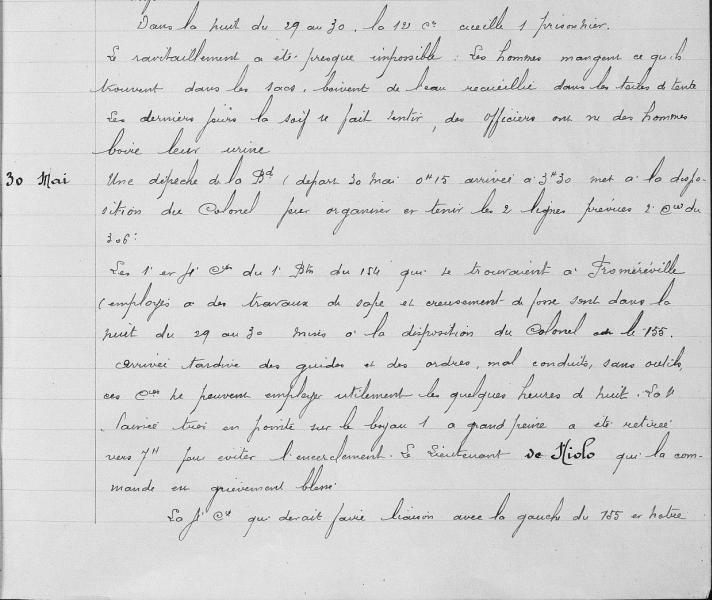 Dans la nuit du 29 au 30. la 12 Cie cueille 1 prisonnier.
Le ravitaillement a été presque impossible : Les hommes mangent ce qu'ils
trouvent dans les sacs, boivent de l'eau recueillie dans les toiles de tente
Les derniers jours la soif se fait sentir, des officiers ont vu des hommes
boire leur urine
30 Mai Une dépêche de la Bde (départ 30 Mai 0H15 arrivée à 3H30 met à la dispo-
sition du Colonel pour organiser et tenir les 2 lignes prévues 2 Cies du
306e
Les 1e et Cies du 1e Btn du 154 qui se trouvaient à Froméréville
(employés à des travaux de sape et creusement de fosse sont dans la
nuit du 29 au 30 mises à la disposition du Colonel Cdt le 155.
Arrivée tardive des guides et des ordres, mal conduits, sans outils,
ces Cies ne peuvent employer utilement les quelques heures de nuit. La
laissée trop en pointe sur le boyau 1 a grand peine a été retirée
vers 7H pour éviter l'encerclement. Le Lieutenant de Niolo qui la com-
mande est grièvement blessé
La Cie qui devait faire liaison avec la gauche du 155 et notre